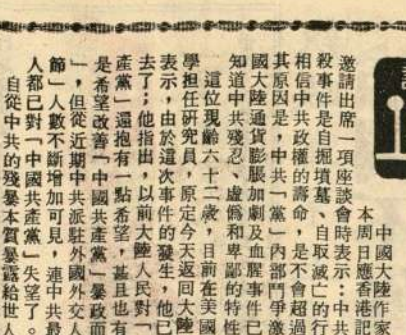 中國大陸作家
本周日應香港記
邀請出席一項座談會時表示：中共
殺事件是自掘墳墓、自取滅亡的行
相信中共政權的壽命，是不會超過
其原因是，中共「黨」內部鬥爭激
國大陸通貨膨脹加劇及血腥事件已
知道中共殘忍、虛偽和卑鄙的特性
這位現齡六十二歲，目前在美國
學担任研究員，原定今天返回大陸
表示，由於這次事件的發生，他已
去了；他指出，以前大陸人民對「
產黨」還抱有一點希望，甚且也有
是希望改善「中國共產黨」暴政而
」，但從近期中共派駐外國外交人
節」人數不斷增加可見，連中共最
人都已對「中國共產黨」失望了。
自從中共的殘暴本質暴露給世人